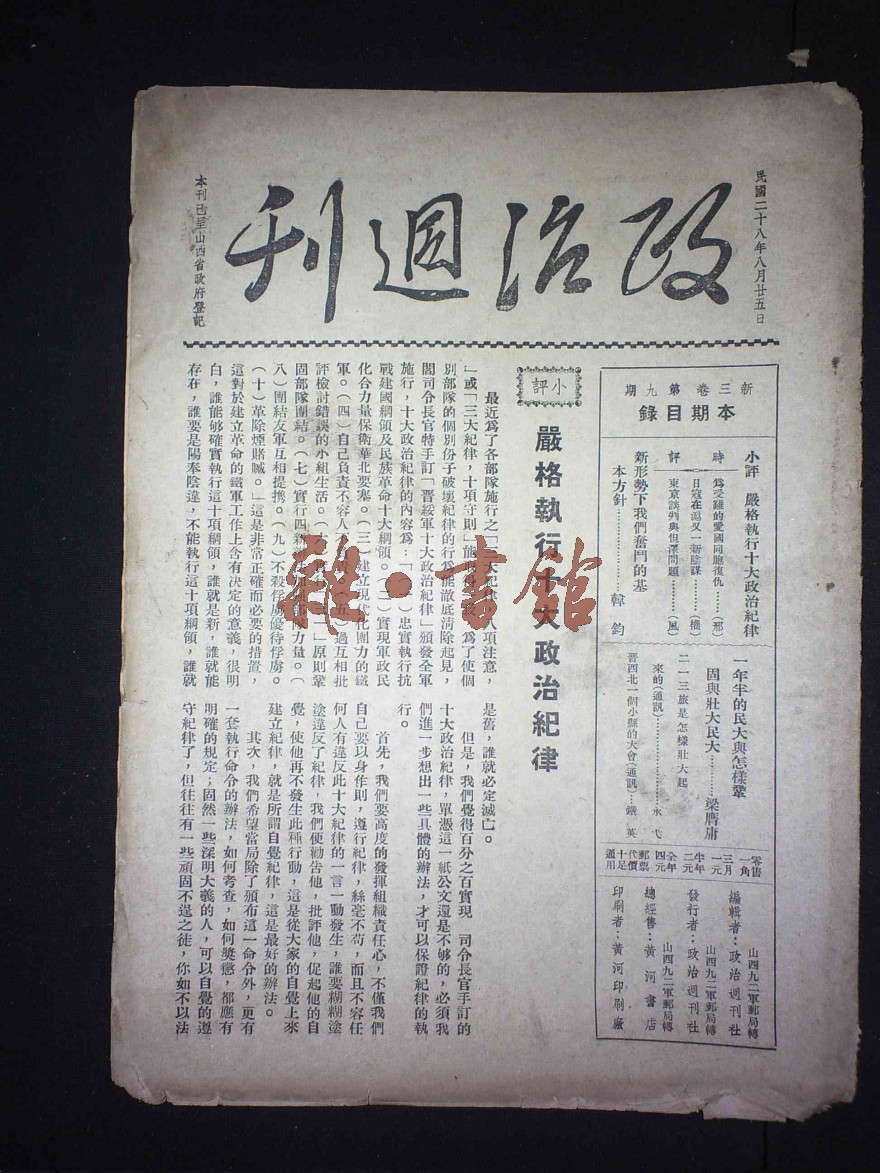 民國二十八年八月廿五日
政治週刊
本刊已呈山西省政府登記
新三卷第九期
本期目錄
小評 嚴格執行十大政治紀律
時評
為受難的愛國同胞復仇………(邢)
日寇在滬又一新陰謀………(樵)
東京談判與但澤問題………(風)
新形勢下我們奮鬥的基
本方針………韓鈞
一年半的民大與怎樣鞏
固與壯大民大………梁膺庸
二一三旅是怎樣壯大起
來的(通訊)………永弋
晋西北一個小縣的大會(通訊)…鐵英
零售一角
三月一元
半年二元
全年四元
郵票代價十足通用
編輯者:政治週刊社
山西九二軍郵局轉
發行者:政治週刊社
山西九二軍郵局轉
總經售:黃河書店
山西九二軍郵局轉
印刷者:黃河印刷廠
小評
嚴格執行十大政治紀律
最近為了各部隊施行之「三大紀律,八項注意,
」或「三大紀律,十項守則」能
為了使個
別部隊的個別份子破壞紀律的行為能澈底清除起見,
閻司令長官特手訂「晋綏軍十大政治紀律」頒發全軍
施行,十大政治紀律的內容為:「
)忠實執行抗
戰建國綱領及民族革命十大綱領。(二)實現軍政民
化合力量保衛華北要塞。(三)建立現代化團力的鐵
軍。(四)自己負責不容人
五)過互相批
評檢討錯誤的小組生活。(
」原則鞏
固部隊團結。(七)實行四新
部隊力量。(
八)團結友軍互相提携。(九)不殺俘虜優待俘虜。
(十)革除煙賭贓。」這是非常正確而必要的措置,
這對於建立革命的鐵軍工作上含有決定的意義,很明
白,誰能够確實執行這十項綱領,誰就是新,誰就能
存在,誰要是陽奉陰違,不能執行這十項綱領,誰就
是舊,誰就必定滅亡。
但是,我們覺得百分之百實現 司令長官手訂的
十大政治紀律,單憑這一紙公文還是不够的,必須我
們進一步想出一些具體的辦法,才可以保證紀律的執
行。
首先,我們要高度的發揮組織責任心,不僅我們
自己要以身作則,遵行紀律,絲毫不苟,而且不容任
何人有違反此十大紀律的一言一動發生,誰要糊糊塗
塗違反了紀律,我們便勸告他,批評他,促起他的自
覺,使他再不發生此種行動,這是從大家的自覺上來
建立紀律,就是所謂自覺紀律,這是最好的辦法。
其次,我們希望當局除了頒布這一命令外,更有
一套執行命令的辦法,如何考查,如何獎懲,都應有
明確的規定,固然一些深明大義的人,可以自覺的遵
守紀律了,但往往有一些頑固不逞之徒,你如不以法
雜·書館